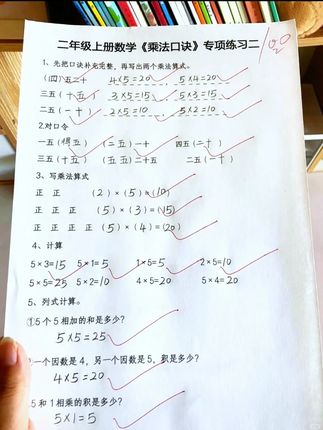 二年级上册数学《乘法口诀》专项练习二
100
1、先把口诀补充完整，再写出两个乘法算式。
(四)五二十 4×5=20, 5×4=20
三五(十五) 3×5=15, 5×3=15
二五(一十) 2×5=10, 5×2=10
2.对口令
一五(得五) (二五)一十 四五(二十)
三五(十五) (五五)二十五 二五(一十)
3、写乘法算式
正 正 (2)×(5)=(10)
正 正 正 (5)×(3)=(15)
正 正 正 正 (5)×(4)=(20)
4、计算
5×3=15 5×1=5 1×5=5 2×5=10
5×5=25 5×2=10 4×5=20 5×4=20
5、列式计算。
①5个5相加的和是多少?
5×5=25
一个因数是4，另一个因数是5，积是多少?
4×5=20
5和1相乘的积是多少?
5×1=5